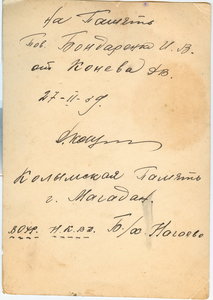 на Память
Тов. Бондаренко И. В.
от Конева
27-II-39.
Колымская Память
г. Магадан.
ВОХР. Н.К.В.Д. Б/х Нагаево